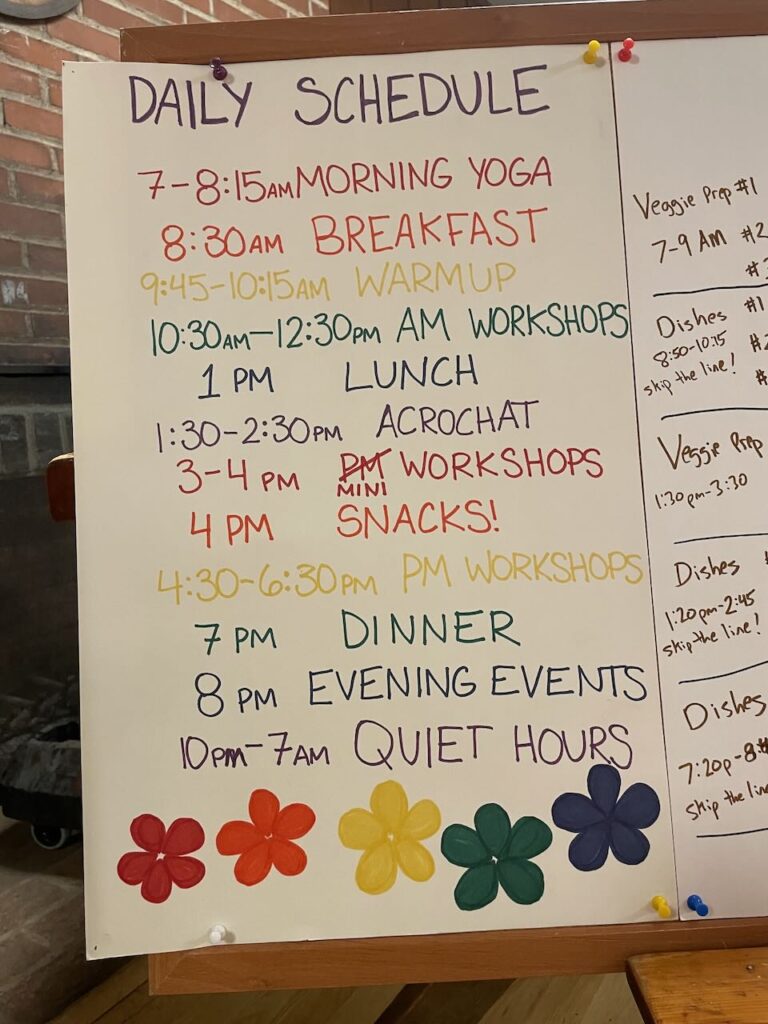 DAILY SCHEDULE
7-8:15AM MORNING YOGA
8:30AM BREAKFAST
9:45-10:15AM WARMUP
10:30AM-12:30PM AM WORKSHOPS
1 PM LUNCH
1:30-2:30PM ACROCHAT
3-4 PM PM WORKSHOPS
MINI
4 PM SNACKS!
4:30-6:30PM PM WORKSHOPS
7 PM DINNER
8 PM EVENING EVENTS
10PM-7AM QUIET HOURS
Veggie Prep #1
7-9 AM #2
Dishes #1
8:50-10:15
skip the line!
Veggie Prep
1:30pm-3:30
Dishes
1:20pm-2:45
skip the line!
Dishes
7:20p-8:
skip the line